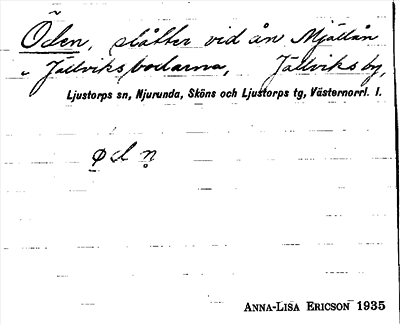 Öden, slåtter vid ån Mjällån
i Jällviksbodarna, Jällviks by,
Ljustorps sn, Njurunda, Sköns och Ljustorps tg, Västernorrl. l.
ø d n̥
ANNA-LISA ERICSON 1935